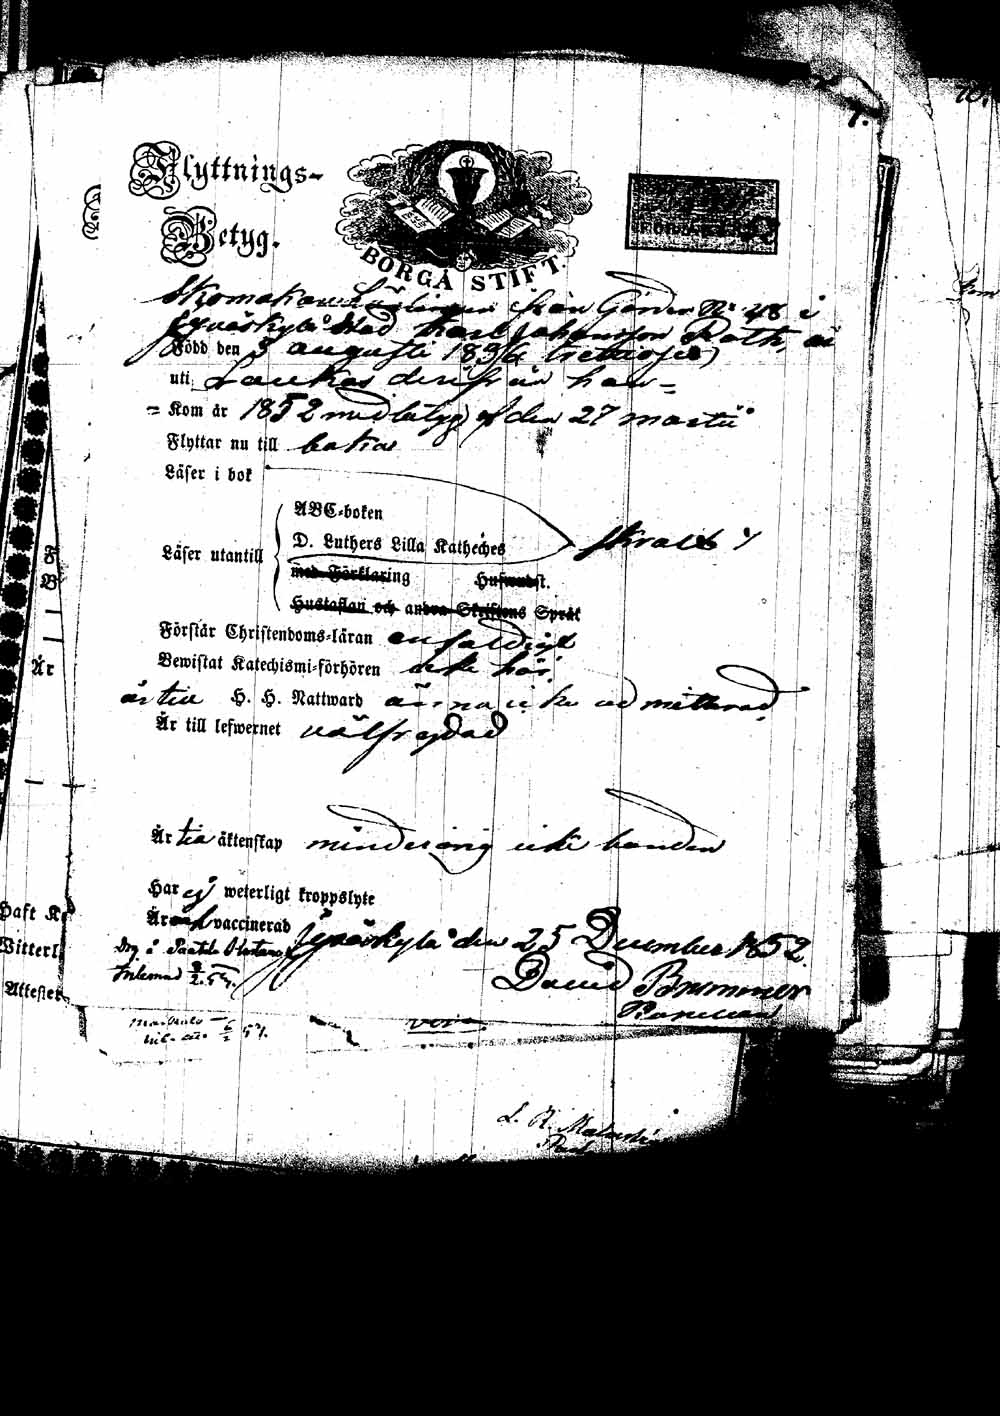 7.
10.
Flyttnings-
Betyg.
BORGÅ STIFT.
Skomakare Lärlingen från Gården No 48 i
Jyväskylä Stad Karl Johansson Roth, är
Född den 3 augusti 1836 (trettiosex)
uti Laukas derifrån han
= Kom år 1852 med betyg af den 27 martii
Flyttar nu till baka
Läser i bok
ABC-boken
Läser utantill D. Luthers Lilla Katheches skralt
med Förklaring Hufwudst.
Hustaflan och andra Skriftens Språk
Förstår Christendoms-läran enfaldigt
Bewistat Katechismi-förhören icke här
är till H. H. Nattward ännu icke admitterad
Är till lefwernet välfrejdad
Är till äktenskap minderårig icke bunden
Har ej weterligt kroppslyte
Är vaccinerad
Jyväskylä den 25 December 1852.
David Brummer
F
B
År
Haft
Witterl
Attester